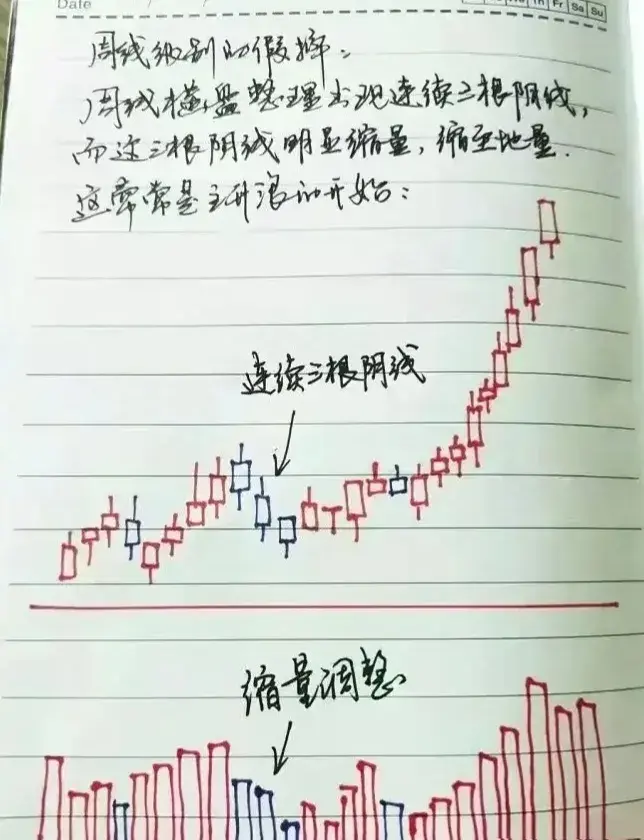 Date / /
Th Fr Sa Su
周线级别的假摔:
周线横盘整理出现连续三根阴线,
而这三根阴线明显缩量,缩至地量.
这常常是主升浪的开始:
连续三根阴线
缩量调整